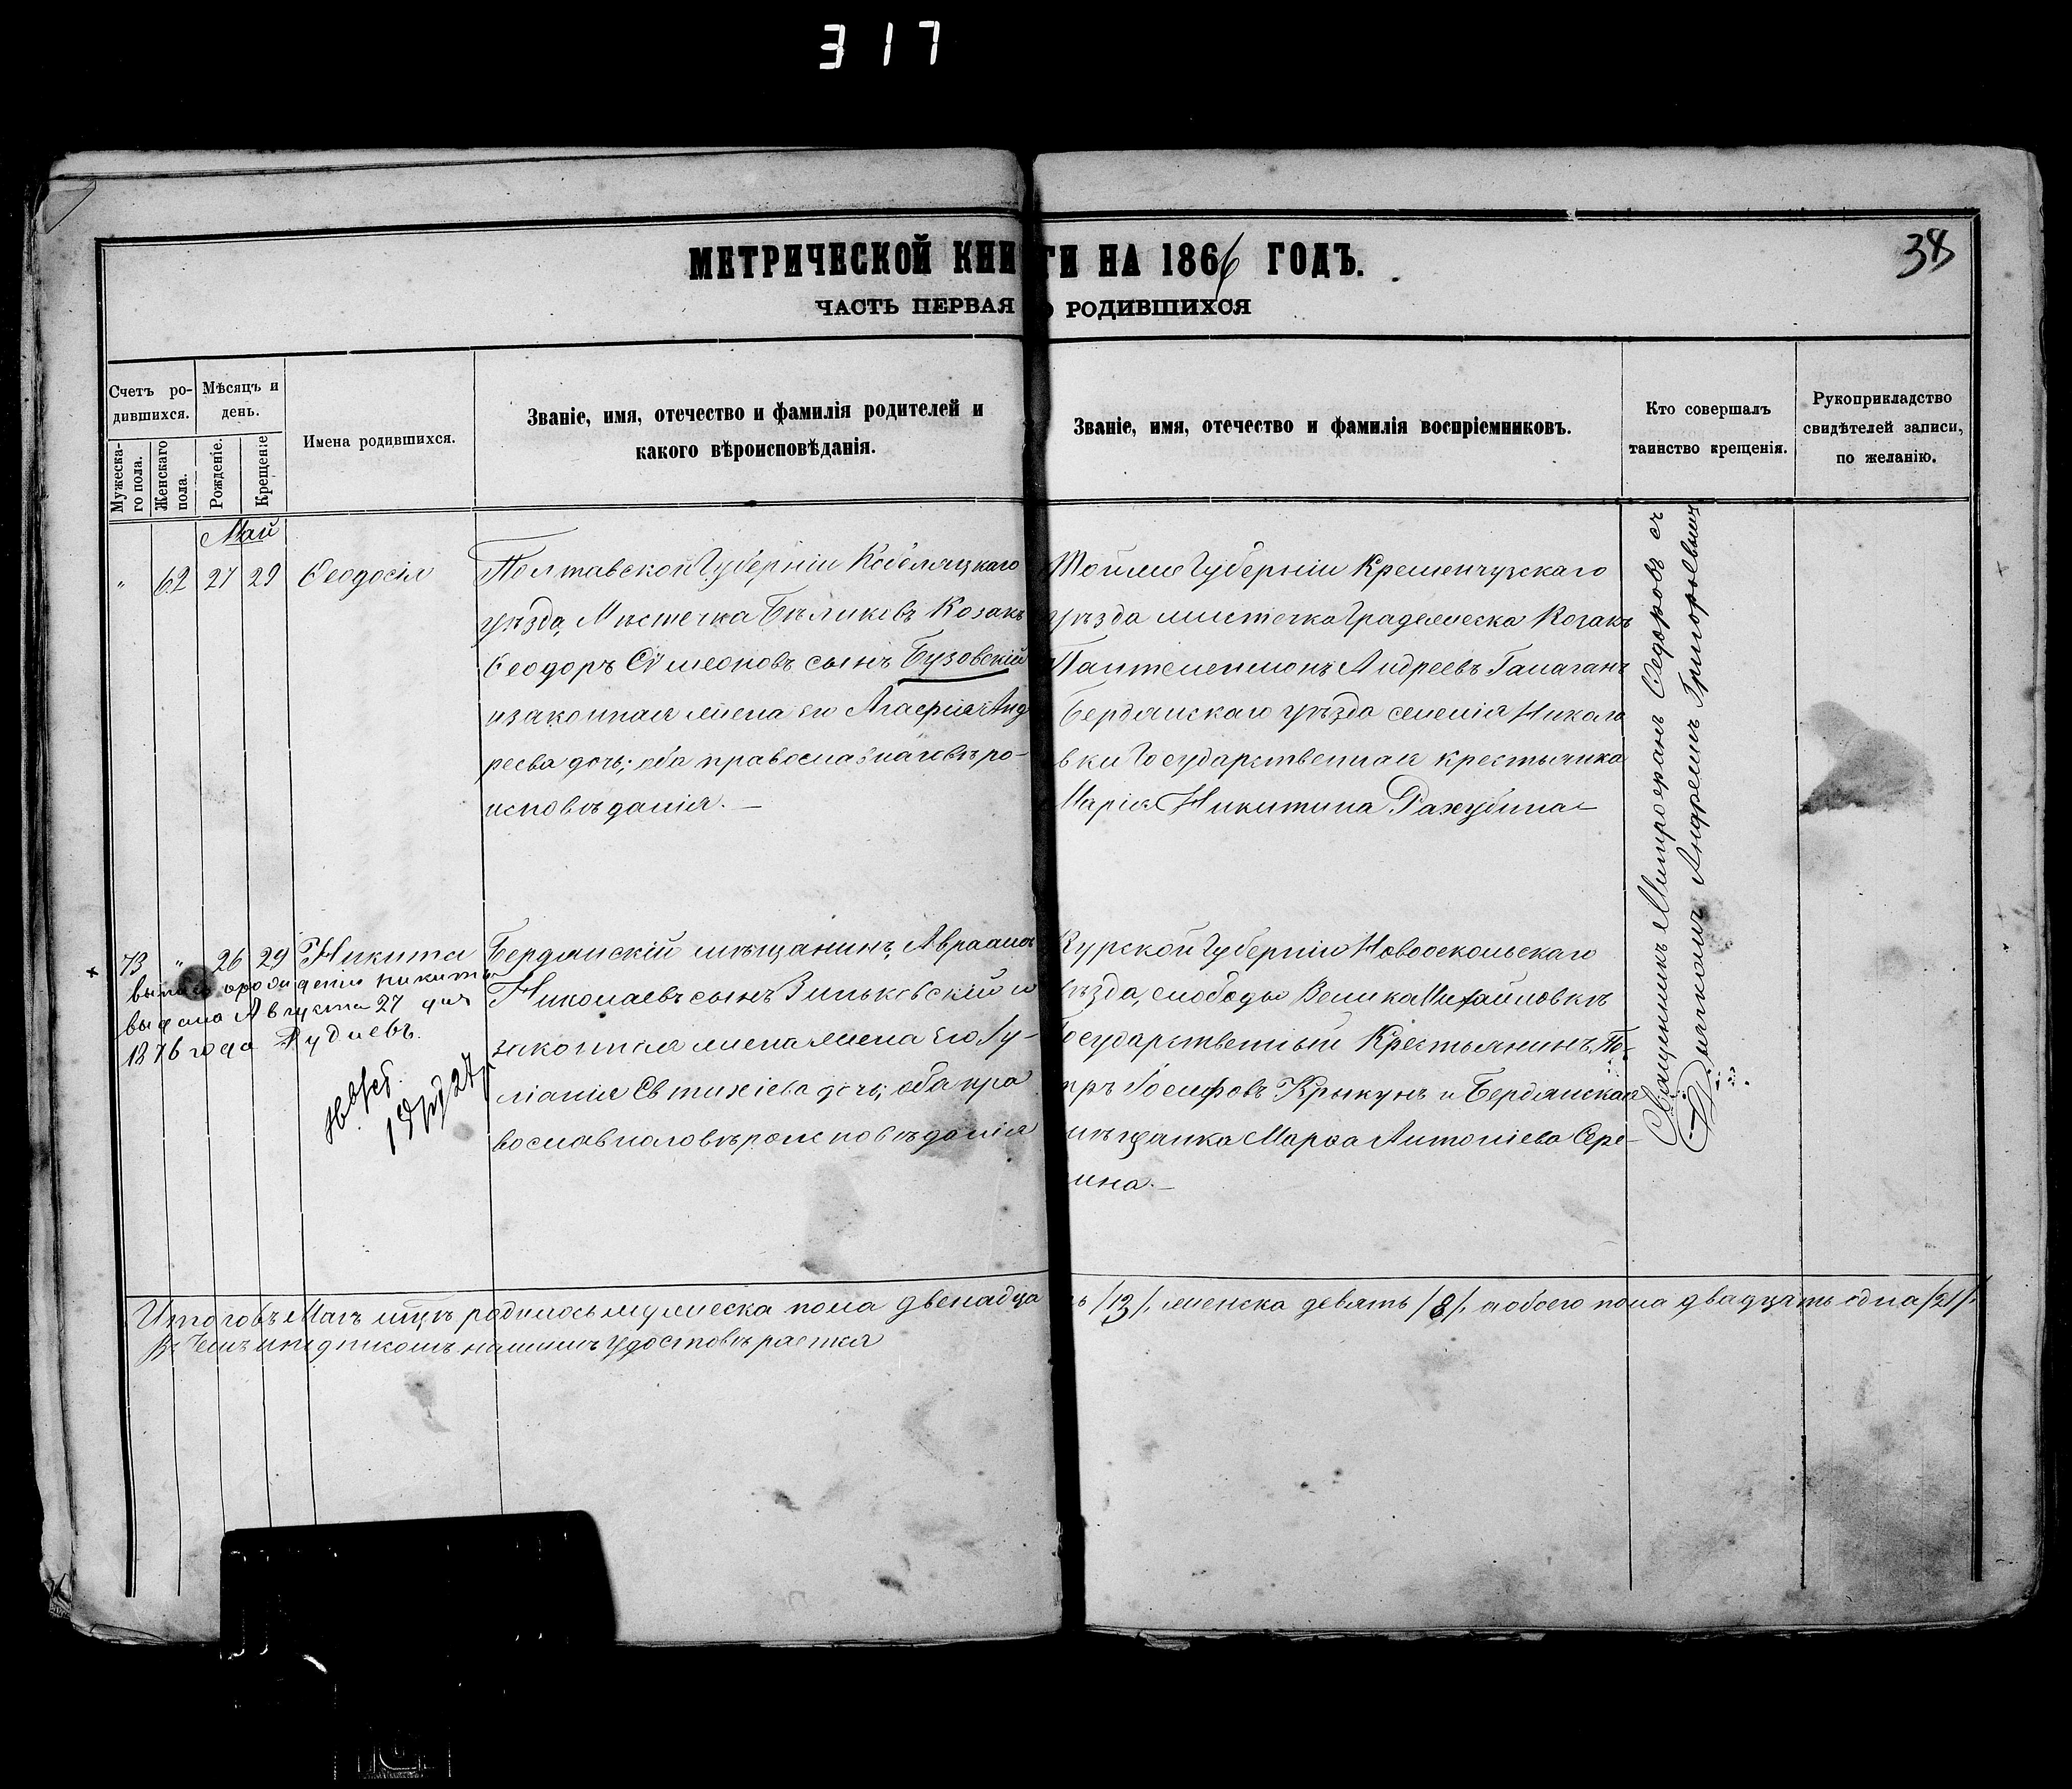 317
МЕТРИЧЕСКОЙ КНИГИ НА 1866 ГОДЪ.
38
ЧАСТЬ ПЕРВАЯ О РОДИВШИХСЯ
Счетъ ро-
дившихся.
Мужеска-
го пола.
Женскаго
пола.
Мѣсяцъ и
день.
Рожденіе.
Крещеніе
Имена родившихся.
Званіе, имя, отечество и фамилія родителей и
какого вѣроисповѣданія.
Званіе, имя, отечество и фамилія воспріемниковъ.
Кто совершалъ
таинство крещенія.
Рукоприкладство
свидѣтелей записи,
по желанію.
Май
" 62 27 29 Ѳеодосія
Полтавской Губерніи Кобеляцкаго
уѣзда, Мѣстечка Бѣликовъ Козакъ
Ѳеодоръ Сѵмеоновъ сынъ Бузовскій
и законная жена его Агафія Анд
реева дочь; оба православнаго вѣро-
исповѣданія.—
Тойже Губерніи Кременчузскаго
уѣзда мистечка Градижеска Козакъ
Пантелеимонъ Андреевъ Галаганъ
Бердянскаго уѣзда селенія Никола
вки Государственная крестьянка
Марія Никитина Рахубина
Священникъ Митрофанъ Ѳедоровъ съ
Дьячкомъ Андреемъ Григорьевымъ
73 " 26 29 Никита
Бердянскій мѣщанинъ, Авраамъ
Николаевъ сынъ Зиньковскій и
законная жена жена его Іу-
ліанія Евтихіева дочь; оба пра
вославнаго вѣроисповѣданія
Курской Губерніи Новооскольскаго
уѣзда, слободы Велика Михайловкѣ
Государственный Крестьянинъ Пе-
тръ Іосифовъ Крыкунъ и Бердянская
мѣщанка Марѳа Антоніева Сере-
дина.—
о рожденіи Никиты
выдана Августа 27 дня
1876 года Рудневъ.
Итого въ Маѣ мцѣ родилось мужеска пола двенадцать /13/, женска девять /8/, и обоего пола двадцать одна /21/.
В Чемъ и подписомъ нашимъ удостовѣряется